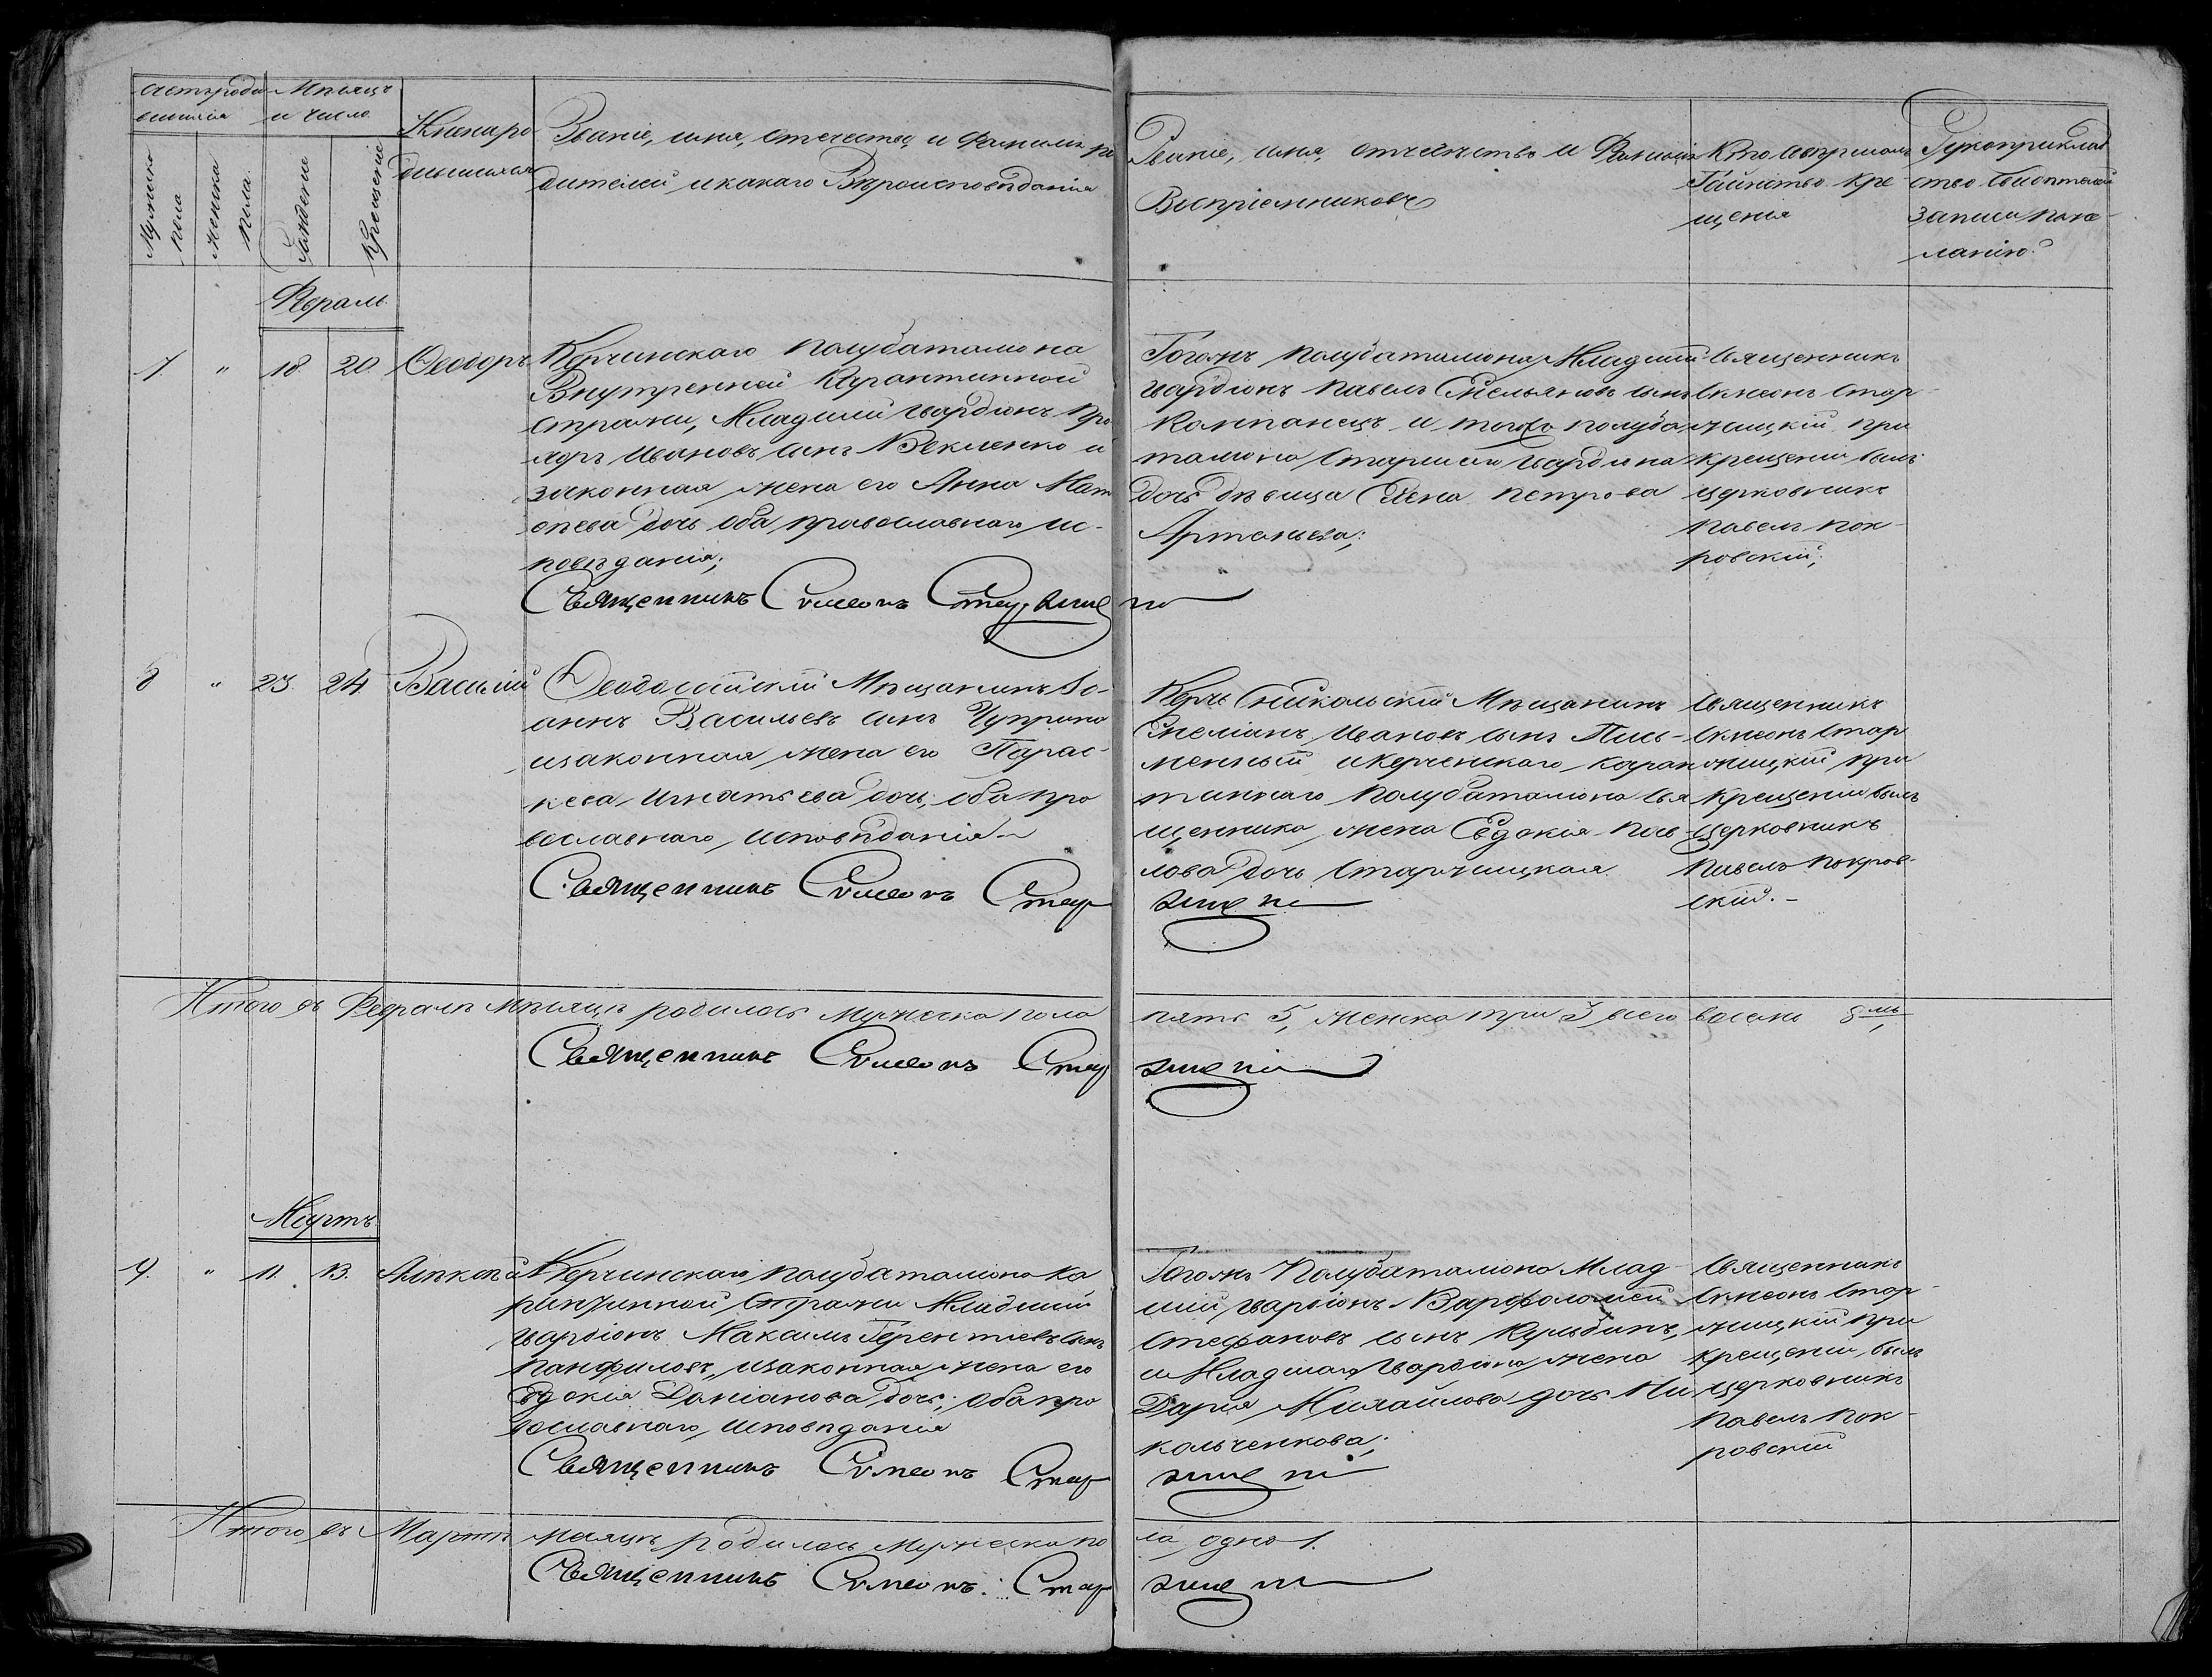 Счетъ роди-
вшихся
Мѣсяцъ
и число
Мужска
пола
Женска
пола.
Рожденіе
Крещеніе
Имена ро-
дившихся
Званіе, имя, отечество, и фамилія ро
дителей, и какаго Вѣроисповѣданія
Званіе, имя, отечество и Фамилія
Воспріемниковъ
Кто совершалъ
Таинство кре-
щенія
Рукоприклад
ство свидѣтелей
записи по же-
ланію.
Февраль
7 " 18 20 Ѳеодоръ
Керчинскаго полубаталіона
Внутренней Карантинной
стражи, Младшій гвардіонъ
Ивановъ сынъ Векленко и
законная жена его Анна Мат
вѣева дочь оба православнаго ис-
повѣданія;
Тогожъ полубаталіона Младшій
гвардіонъ Павелъ Емельяновъ сынъ
Компанецъ и тогожъ полуба
таліона Старшаго гвардіона
дочь дѣвица Елена Петрова
Артемьева;
Священникъ
Симеонъ Стар-
жицкій при
крещеніи былъ
церковникъ
Павелъ Пок-
ровскій;
Священникъ Симеонъ Старжицкій
8 " 23. 24 Василій
Ѳеодосійскій Мѣщанинъ Іо-
аннъ Васильевъ сынъ Чуприна
и законная жена его Парас-
кева Игнатьева дочь; оба пра
вославнаго исповѣданія
Керчь Еникольскій Мѣщанинъ
Емеліанъ Ивановъ сынъ Пись-
менный и Керченскаго каран
тиннаго полубаталіона свя
щенника жена Евдокія Пав-
лова дочь Старжицкая
Священникъ
Симеонъ Стар
жицкій при
крещеніи былъ
церковникъ
Павелъ Покров-
скій.
Священникъ Симеонъ Старжицкій
Итого въ Февралѣ мѣсяцѣ родилось мужеска пола пять 5, женска три 3 всего восемь 8мь,
Священникъ Симеонъ Старжицкій
Мартъ
9. " 11. 13. Алексѣй
Керчинскаго полубаталіона ка
рантинной стражи Младшій
гвардіонъ Максимъ Терентіевъ сынъ
Панфиловъ, и законная жена его
Евдокія Даміанова дочь; оба пра
вославнаго исповѣданія
Тогожъ Полубаталіона Млад-
шій гвардіонъ Варфоломей
Стефановъ сынъ Кульбинъ,
и Младшаго гвардіона жена
Дарія Михайлова дочь Ни
кольченкова;
Священникъ
Симеонъ Стар-
жицкій при
крещеніи былъ
церковникъ
Павелъ Пок-
ровскій
Священникъ Симеонъ Старжицкій
Итого въ Мартѣ мѣсяцѣ родилось мужеска пола, одно 1.
Священникъ Симеонъ Старжицкій